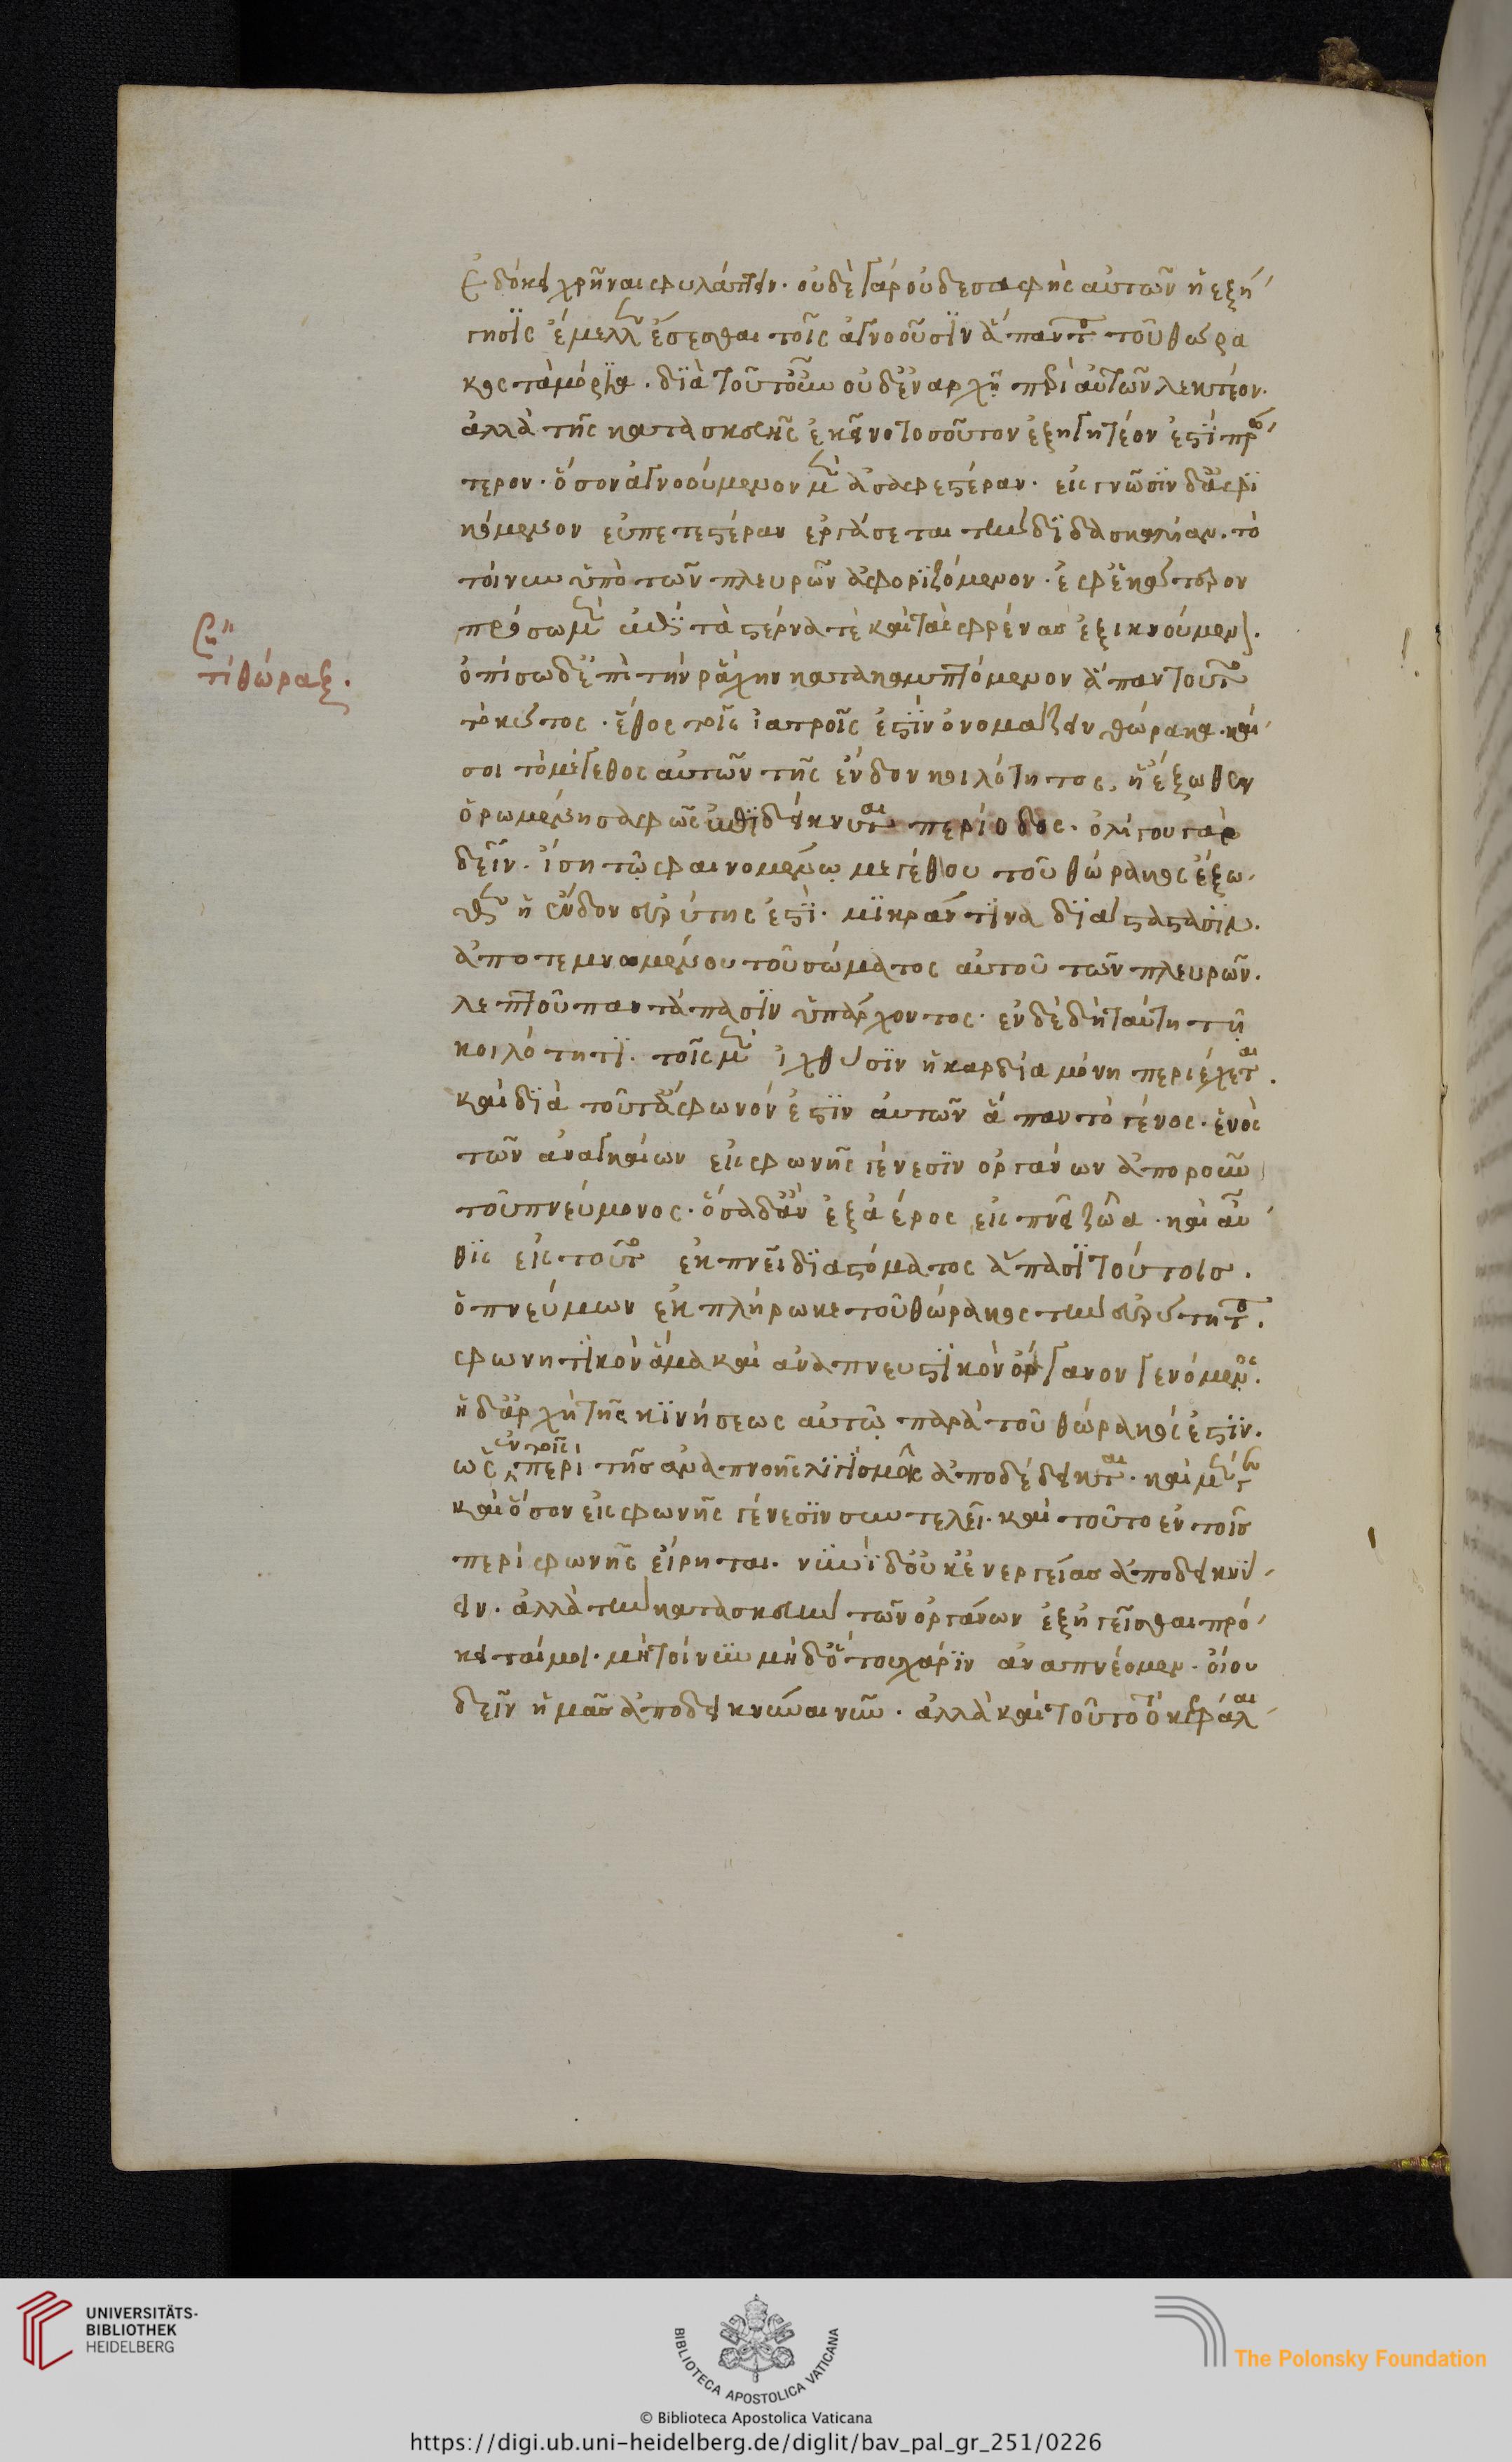 ἐδόκει χρῆναι φυλάττειν. οὐδὲ γάρ οὐδε σαφὴς αὐτῶν ἡ ἐξή
γησϊς ἔμελλεν ἔσεσθαι τοῖς ἀγνοοῦσϊν ἅπαντα τοῦ θώρα
κος τὰ μόρϊα. δϊὰ τοῦτ' οὖν οὐδ' ἐν ἀρχῇ περὶ αὐτῶν λεκτέον.
ἀλλὰ τῆς κατασκευῆς ἐκεῖνο τοσοῦτον ἐξηγητέον ἐστὶ πρό
τερον. ὅσον ἀγνοούμενον μὲν ἀσαφεστέραν. εἰς γνῶσϊν δ' ἀφϊ
κόμενον εὐπετεστέραν ἐργάσεται τὴν δϊδασκαλίαν. τὸ
τοίνυν ὑπὸ τῶν πλευρῶν ἀφορϊζόμενον. ἐφ' ἑκάτερον
πρόσω μὲν ἐπὶ τὰ στέρνα τὲ καὶ τὰς φρένας ἐξικνούμενον.
ὀπίσω δ' ἐπὶ τὴν ῥάχιν κατακαμπτόμενον ἅπαν τοῦτο
τὸ κύτος. ἔθος τοῖς ἰατροῖς ἐστὶν ὀνομάζειν θώρακα. καί
σοι τὸ μέγεθος αὐτῶν τῆς ἔνδον κοιλότητος, ἡ ἔξωθεν
ὁρωμένη σαφῶς ἐπιδείκνυται περίοδος. ὀλίγου γὰρ
δεῖν. ἴση τῷ φαινομένῳ μεγέθου τοῦ θώρακος ἔξω
θεν ἡ ἔνδον εὐρύτης ἐστὶ. μϊκράν τϊνα δϊάστασϊν.
ἀποτεμνομένου τοῦ σώματος αὐτοῦ τῶν πλευρῶν.
λεπτοῦ παντάπασϊν ὑπάρχοντος. ἐν δὲ δὴ ταύτη τῇ
κοιλότητϊ. τοῖς μὲν ἰχθύσϊν ἡ καρδία μόνη περιέχεται.
καὶ δϊὰ τοῦτ' ἄφωνόν ἐστϊν αὐτῶν ἅπαν τὸ γένος. ἑνὸς
τῶν ἀναγκαίων εἰς φωνῆς γένεσϊν ὀργάνων ἀποροῦν
τοῦ πνεύμονος. ὅσα δ' ἂν ἐξ ἀέρος εἰσπνεῖ ζῶα. καὶ αὖ
θϊς εἰς τοῦτον ἐκπνεῖ δϊὰ στόματος ἅπασϊ τούτοις.
ὁ πνεύμων ἐκπλήρωκε τοῦ θώρακος τὴν εὐρύτητα.
φωνητϊκὸν ἅμα καὶ ἀναπνευστϊκὸν ὄργανον γενόμενος.
ἡ δ' ἀρχὴ τῆς κϊνήσεως αὐτῷ παρὰ τοῦ θώρακός ἐστϊν.
ὡς ἐν τοῖς περὶ τῆς ἀναπνοῆς αἰτίοις μὲν ἀποδέδεικται. καὶ μὲν τῶ
καὶ ὅσον εἰς φωνῆς γένεσϊν συντελεῖ. καὶ τοῦτο ἐν τοῖς
περὶ φωνῆς εἴρηται. νυνὶ δ' οὐκ ἐνεργείας ἀποδεικνύ
ειν. ἀλλὰ τὴν κατασκευὴν τῶν ὀργάνων ἐξηγεῖσθαι πρό
κειταί μοι. μὴ τοίνυν μηδ' ὅτου χάρϊν ἀναπνέομεν. οἴου
δεῖν ἡμᾶς ἀποδεικνύναι νῦν. ἀλλὰ καὶ τοῦτο τὸ κεφάλαι
ση
τί θώραξ.
UNIVERSITÄTS-
BIBLIOTHEK
HEIDELBERG
BIBLIOTECA APOSTOLICA VATICANA
The Polonsky Foundation
© Biblioteca Apostolica Vaticana
https://digi.ub.uni-heidelberg.de/diglit/bav_pal_gr_251/0226